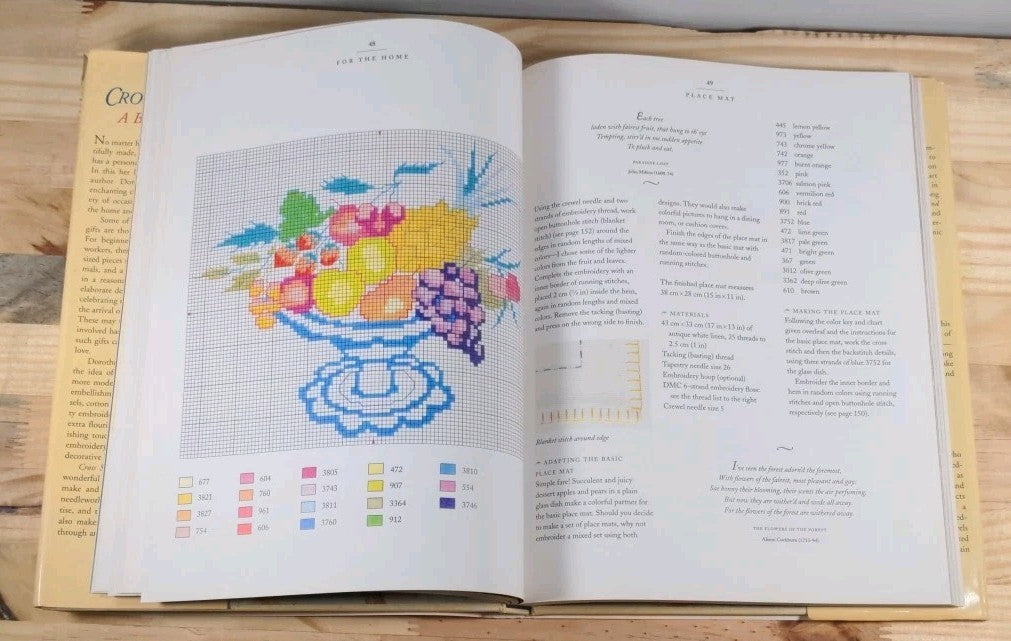 CRO
A B
No matter h
tifully made,
has a person
In this her l
author Dor
enchanting c
ery of occas
the home an
Some of
gifts are tho
For beginne
workers, the
sized pieces
mals, and a
in a reason
elaborate de
celebrating
the arrival o
These may
involved ha
such gifts c
love.
Doroth
the idea of
more mode
embellishin
sels, cotton
ty embroid
extra flouri
ishing touc
embroidery
decorative
Cross S
wonderful
make and
needlewor
rise, and t
also make
through an
48
FOR THE HOME
677
3821
3827
754
604
760
961
606
3805
3743
3811
3760
472
907
3364
912
3810
554
3746
49
PLACE MAT
Each tree
laden with fairest fruit, that hung to th' eye
Tempting, stirr'd in me sudden appetite
To pluck and eat.
PARADISE LOST
John Milton (1608-74)
Using the crewel needle and two
strands of embroidery thread, work
open buttonhole stitch (blanket
stitch) (see page 152) around the
edges in random lengths of mixed
colors—I chose some of the lighter
colors from the fruit and leaves.
Complete the embroidery with an
inner border of running stitches,
placed 2 cm (¾ in) inside the hem,
again in random lengths and mixed
colors. Remove the tacking (basting)
and press on the wrong side to finish.
Blanket stitch around edge
ADAPTING THE BASIC
PLACE MAT
Simple fare! Succulent and juicy
dessert apples and pears in a plain
glass dish make a colorful partner for
the basic place mat. Should you decide
to make a set of place mats, why not
embroider a mixed set using both
designs. They would also make
colorful pictures to hang in a dining
room, or cushion covers.
Finish the edges of the place mat in
the same way as the basic mat with
random-colored buttonhole and
running stitches.
The finished place mat measures
38 cm × 28 cm (15 in × 11 in).
MATERIALS
43 cm × 33 cm (17 in × 13 in) of
antique white linen, 25 threads to
2.5 cm (1 in)
Tacking (basting) thread
Tapestry needle size 26
Embroidery hoop (optional)
DMC 6-strand embroidery floss:
see the thread list to the right
Crewel needle size 5
445 lemon yellow
973 yellow
743 chrome yellow
742 orange
977 burnt orange
352 pink
3706 salmon pink
606 vermilion red
900 brick red
891 red
3752 blue
472 lime green
3817 pale green
471 bright green
367 green
3012 olive green
3362 deep olive green
610 brown
MAKING THE PLACE MAT
Following the color key and chart
given overleaf and the instructions for
the basic place mat, work the cross
stitch and then the backstitch details,
using three strands of blue 3752 for
the glass dish.
Embroider the inner border and
hem in random colors using running
stitches and open buttonhole stitch,
respectively (see page 150).
I've seen the forest adorn'd the foremost,
With flowers of the fairest, most pleasant and gay:
Sae bonny their blooming, their scents the air perfuming,
But now they are wither'd and weeds all away.
For the flowers of the forest are withered away.
THE FLOWERS OF THE FOREST
Alison Cockburn (1713-94)